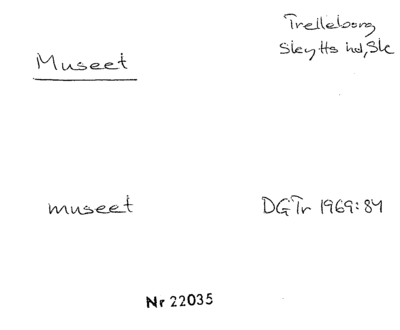 Museet
Trelleborg
Skytts hd, Sk
museet
DGTr 1969:84
Nr 22035